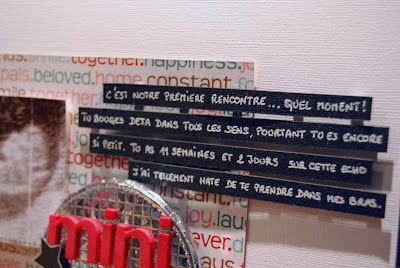 happiness.jo
smile.together.
pals.beloved.home constant.
C'EST NOTRE PREMIERE RENCONTRE... QUEL MOMENT!
TU BOUGES DEJA DANS TOUS LES SENS, POURTANT TU ES ENCORE
SI PETIT. TU AS 11 SEMAINES ET 2 JOURS SUR CETTE ECHO
J'AI TELLEMENT HATE DE TE PRENDRE DANS MES BRAS.
constant.
joy.laus
ever.d
mini